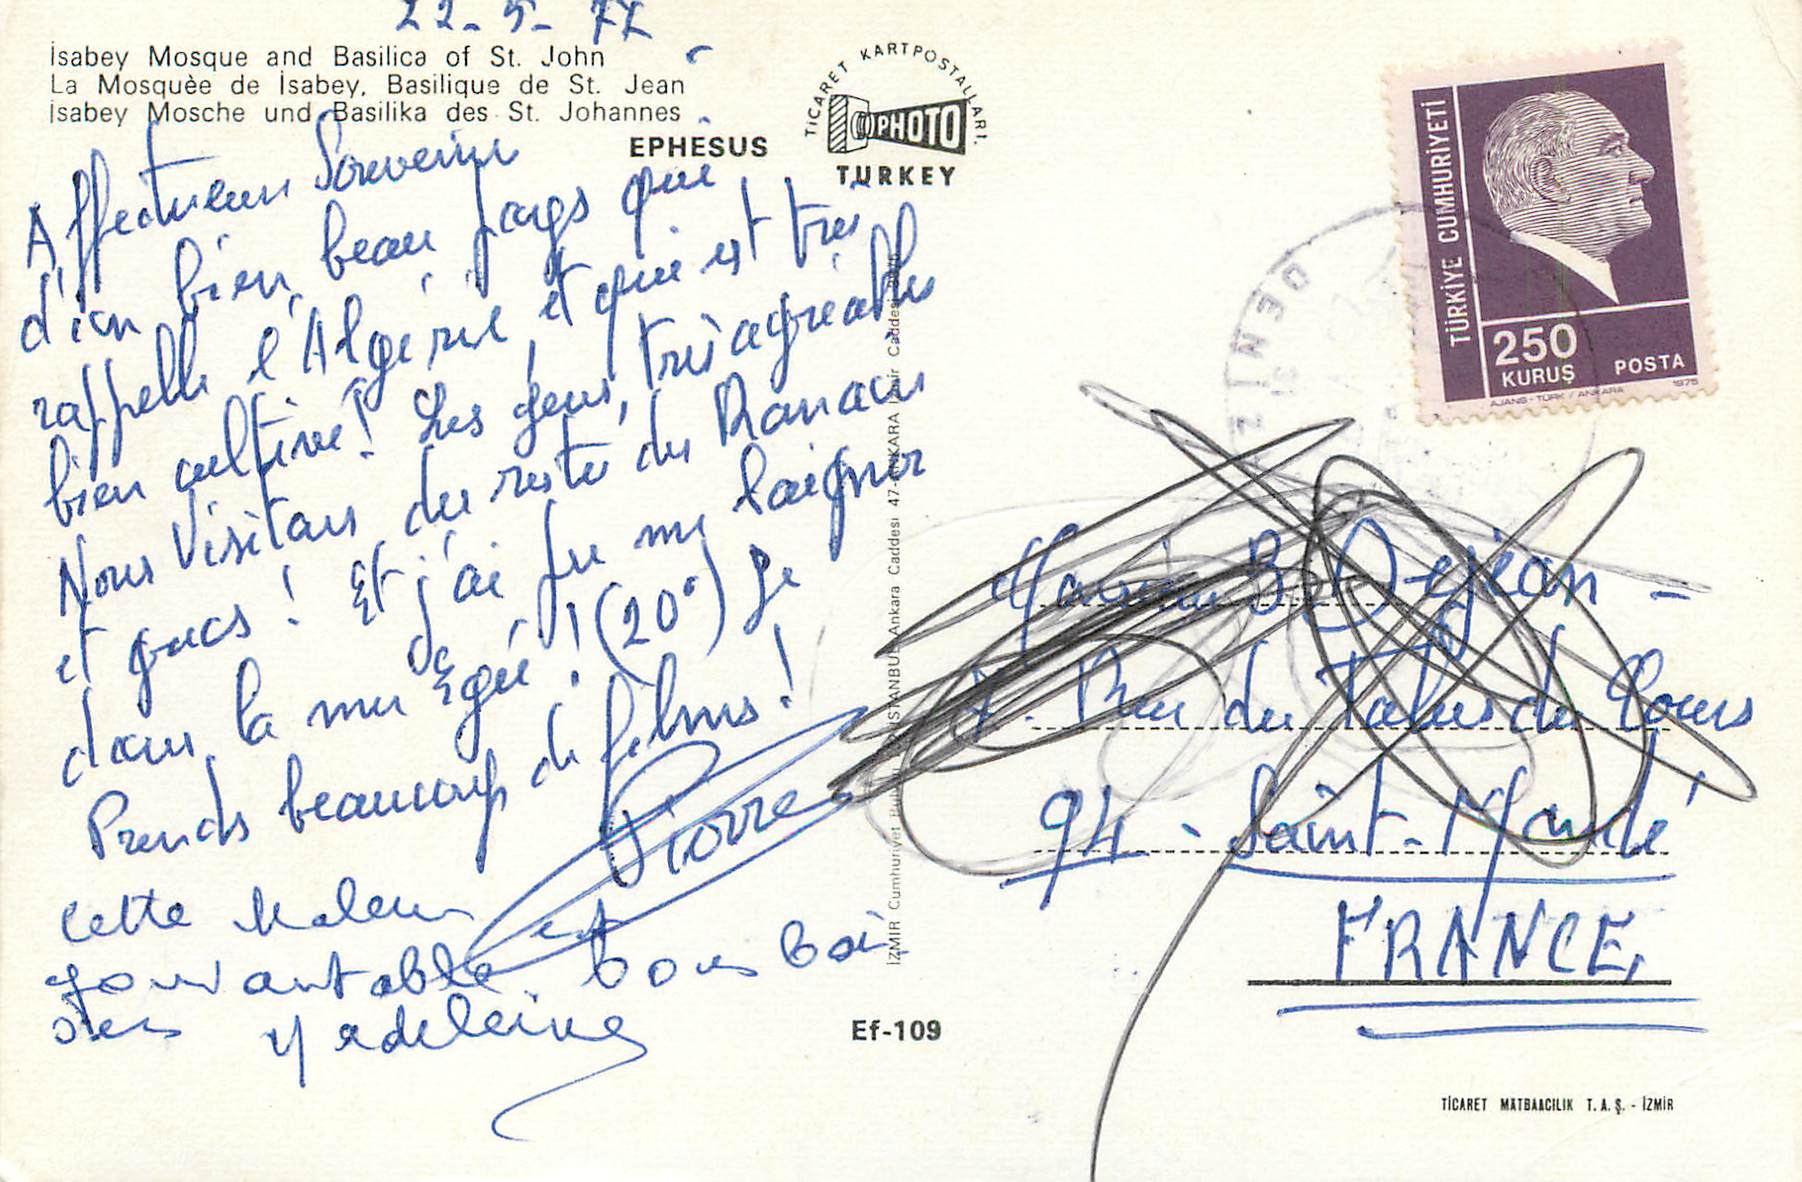 22-5-77
İsabey Mosque and Basilica of St. John
La Mosquèe de İsabey, Basilique de St. Jean
İsabey Mosche und Basilika des St. Johannes
EPHESUS
TİCARET KARTPOSTALLARI.
PHOTO
TURKEY
Affectueux Souvenir
d'un bien beau pays qui
rappelle l'Algérie et qui est très
bien cultivé! Les gens, très agréables
Nous visitons du reste des
et grecs! Et j'ai pu me baigner
dans la mer Égée! (20°) Je
Prends beaucoup de films!
Pierre
cette
et
bons bai
sers Madeleine
İZMIR Cumhuriyet İSTANBUL Ankara Caddesi 47 ANKARA
Ef-109
TÜRKİYE CUMHURİYETİ
250
KURUŞ
POSTA
AJANS-TÜRK / ANKARA
1975
DENİZ
B. Dejean -
7. Rue du Talus du Cours
94 - Saint-Mandé
FRANCE,
TİCARET MATBAACILIK T.A.Ş. - İZMİR